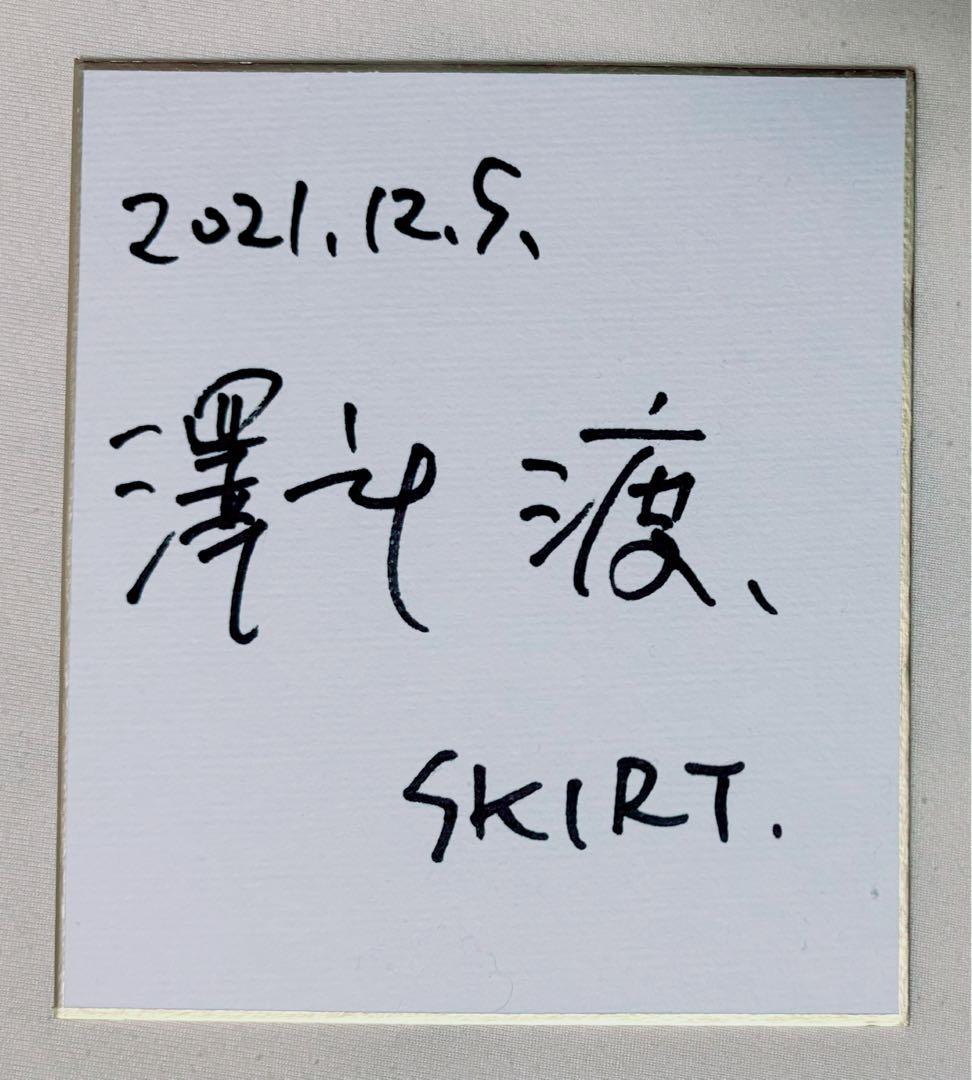 2021.12.5.
澤部 渡、
SKIRT.